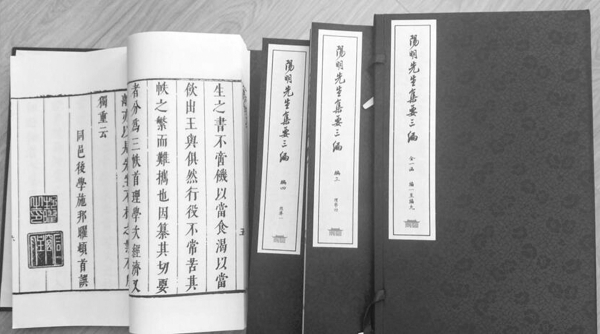 陽明先生集要三編
全一函 編一至編九
陽明先生集要三編
編三
陽明先生集要三編
編四
生之書不啻饑以當食渴以當
飲出王與俱然行役不常苦其
帙之繁而難攜也因纂其切要
者分爲三帙首理學次經濟又
獨重云
同邑後學施邦曜頓首譔